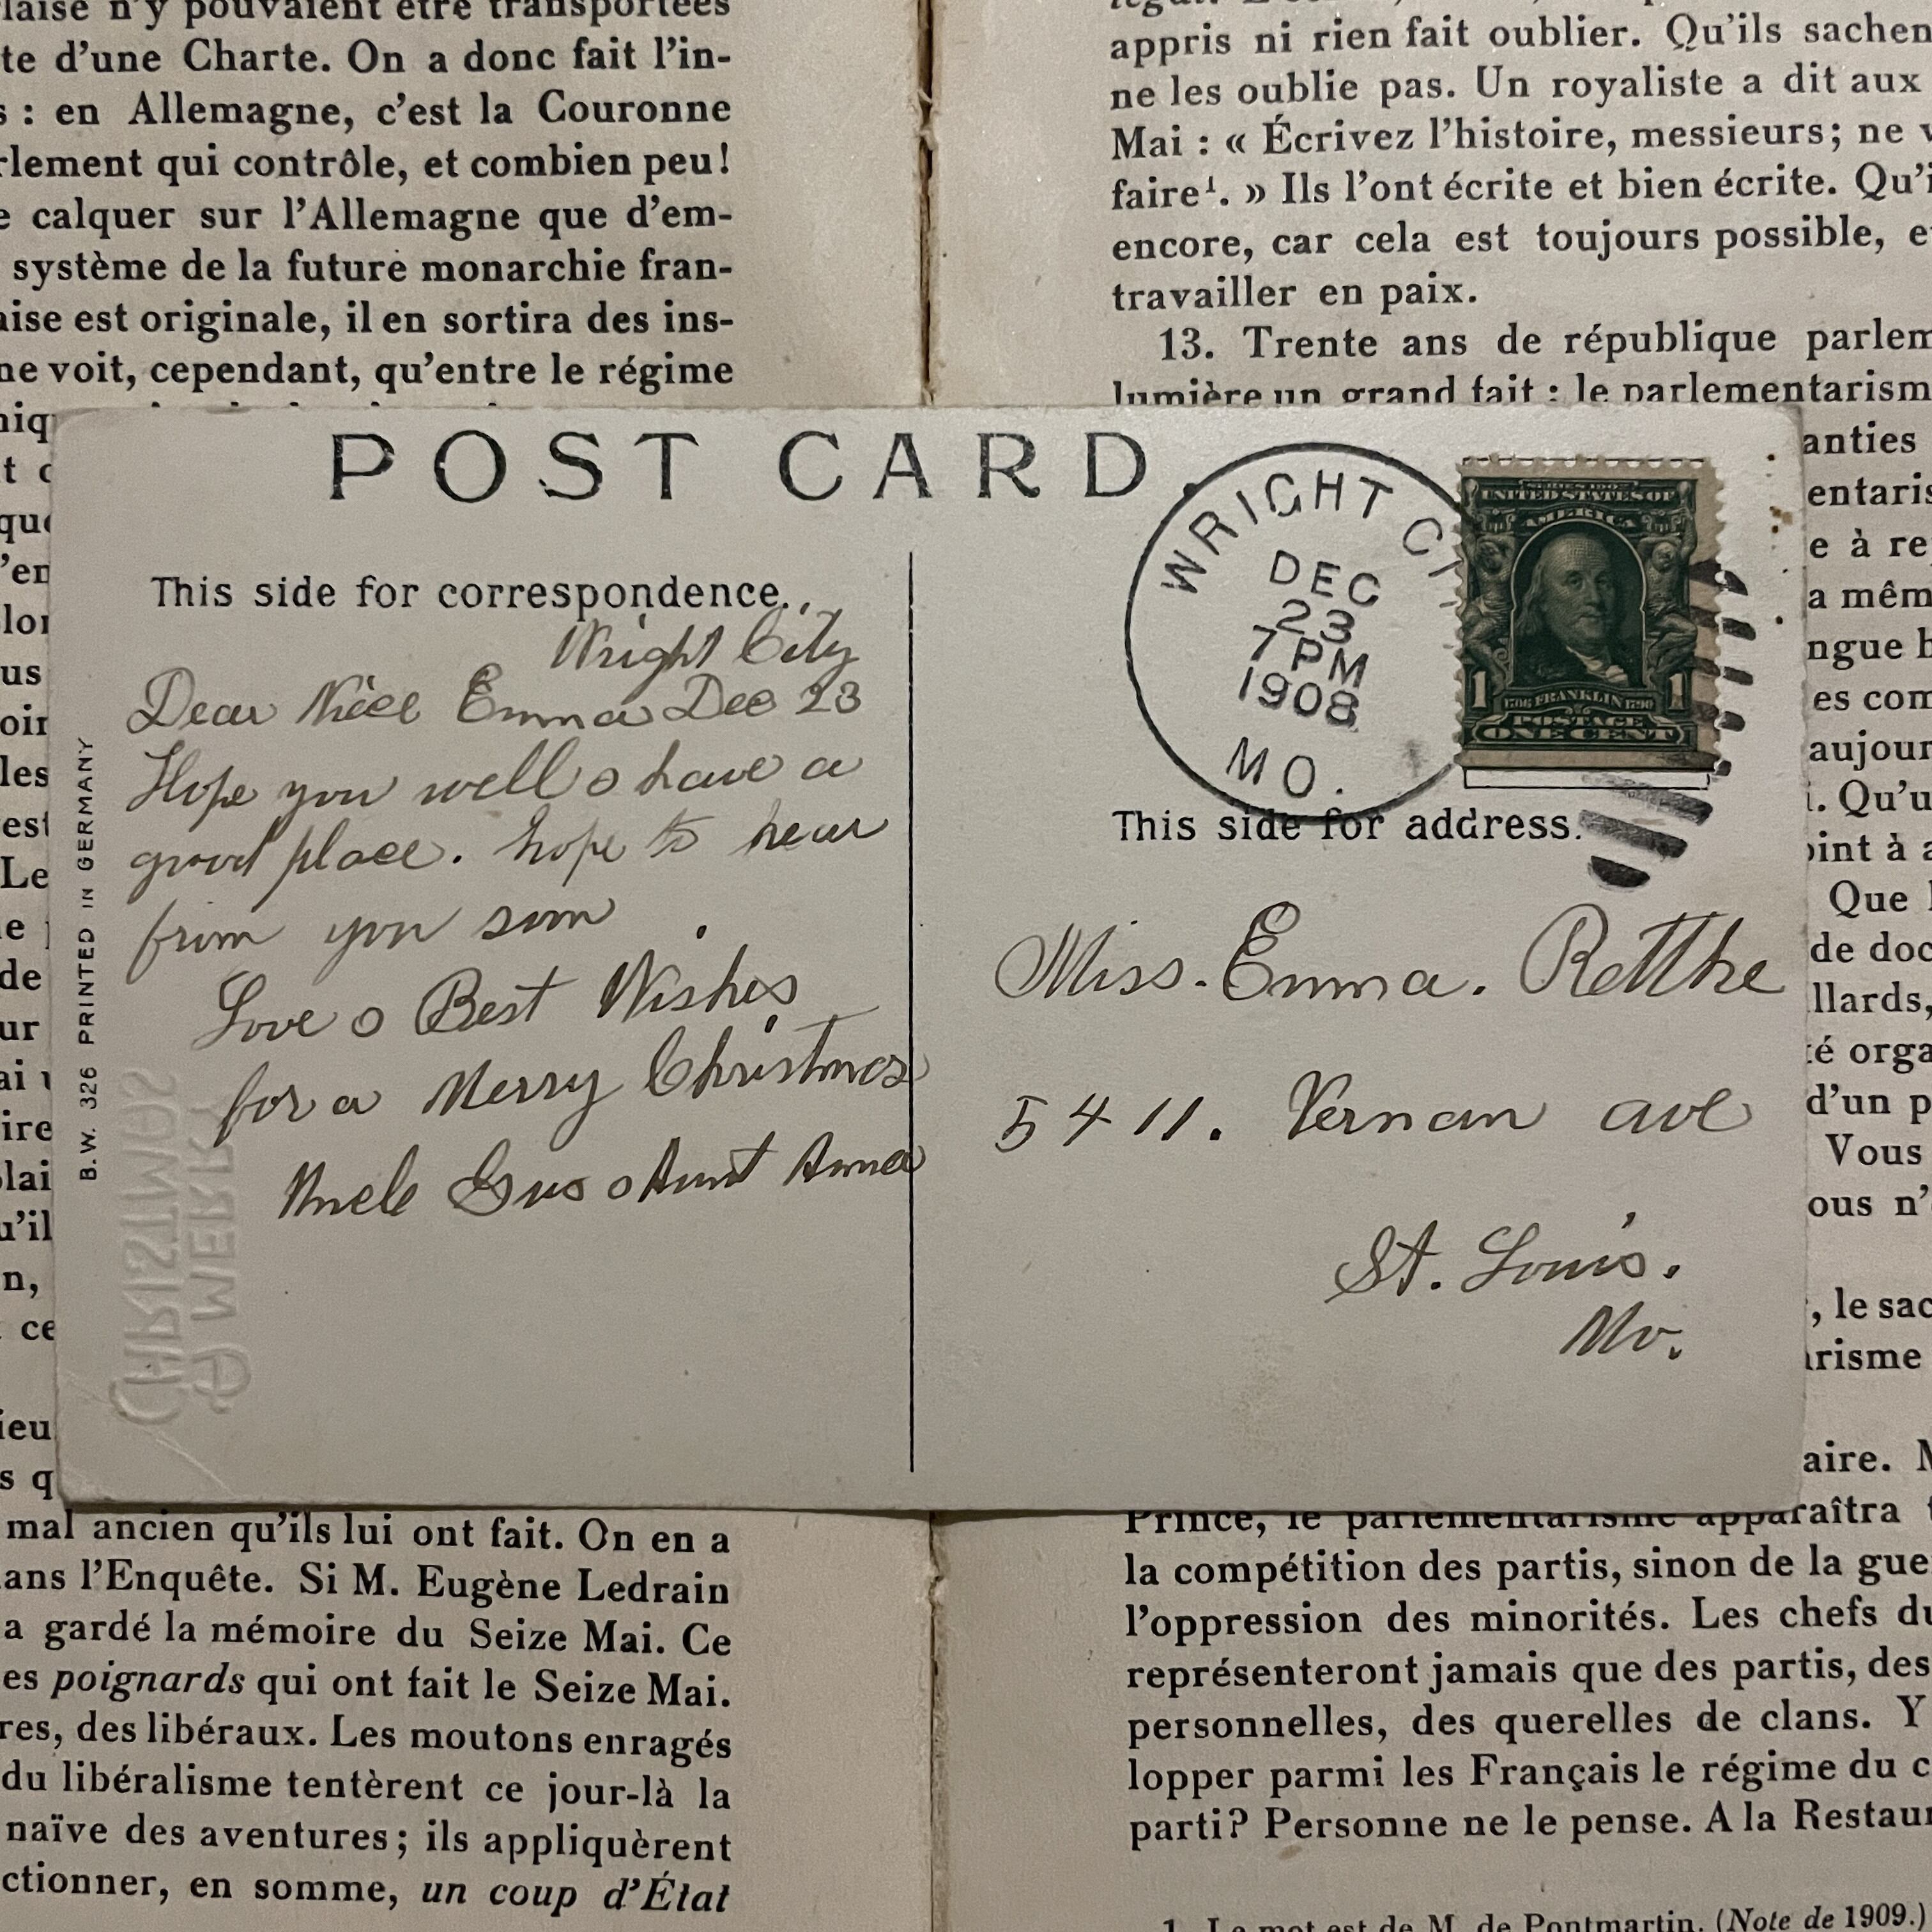 laise n'y pouvaient être transportées
te d'une Charte. On a donc fait l'in-
s : en Allemagne, c'est la Couronne
rlement qui contrôle, et combien peu!
e calquer sur l'Allemagne que d'em-
système de la future monarchie fran-
aise est originale, il en sortira des ins-
ne voit, cependant, qu'entre le régime
appris ni rien fait oublier. Qu'ils sachen
ne les oublie pas. Un royaliste a dit aux
Mai : « Écrivez l'histoire, messieurs; ne v
faire¹. » Ils l'ont écrite et bien écrite. Qu'i
encore, car cela est toujours possible, e
travailler en paix.
13. Trente ans de république parlem
lumière un grand fait : le parlementarism
POST CARD.
This side for correspondence.
Wright City
Dear Niece Emma Dec 23
Hope you well & have a
good place. hope to hear
from you soon
Love & Best Wishes
for a Merry Christmas
Uncle Gus & Aunt Anna
B.W. 326 PRINTED IN GERMANY
A MERRY
CHRISTMAS
WRIGHT CI
DEC
23
7 PM
1908
MO.
SERIES 1902
UNITED STATES OF
AMERICA
1 1706 FRANKLIN 1790 1
POSTAGE
ONE CENT
This side for address.
Miss. Emma. Retthe
5411. Vernan ave
St. Louis.
Mo.
anties
entaris
e à re
a mêm
ngue h
es com
aujour
i. Qu'u
oint à a
Que
de doc
llards,
té orga
d'un p
Vous
ous n'
, le sac
arisme
aire. M
mal ancien qu'ils lui ont fait. On en a
ans l'Enquête. Si M. Eugène Ledrain
a gardé la mémoire du Seize Mai. Ce
es poignards qui ont fait le Seize Mai.
res, des libéraux. Les moutons enragés
du libéralisme tentèrent ce jour-là la
naïve des aventures; ils appliquèrent
ctionner, en somme, un coup d'État
Prince, le parlementarisme apparaîtra
la compétition des partis, sinon de la gue
l'oppression des minorités. Les chefs du
représenteront jamais que des partis, des
personnelles, des querelles de clans. Y
lopper parmi les Français le régime du c
parti? Personne ne le pense. A la Restau
1. Le mot est de M. de Pontmartin. (Note de 1909.)